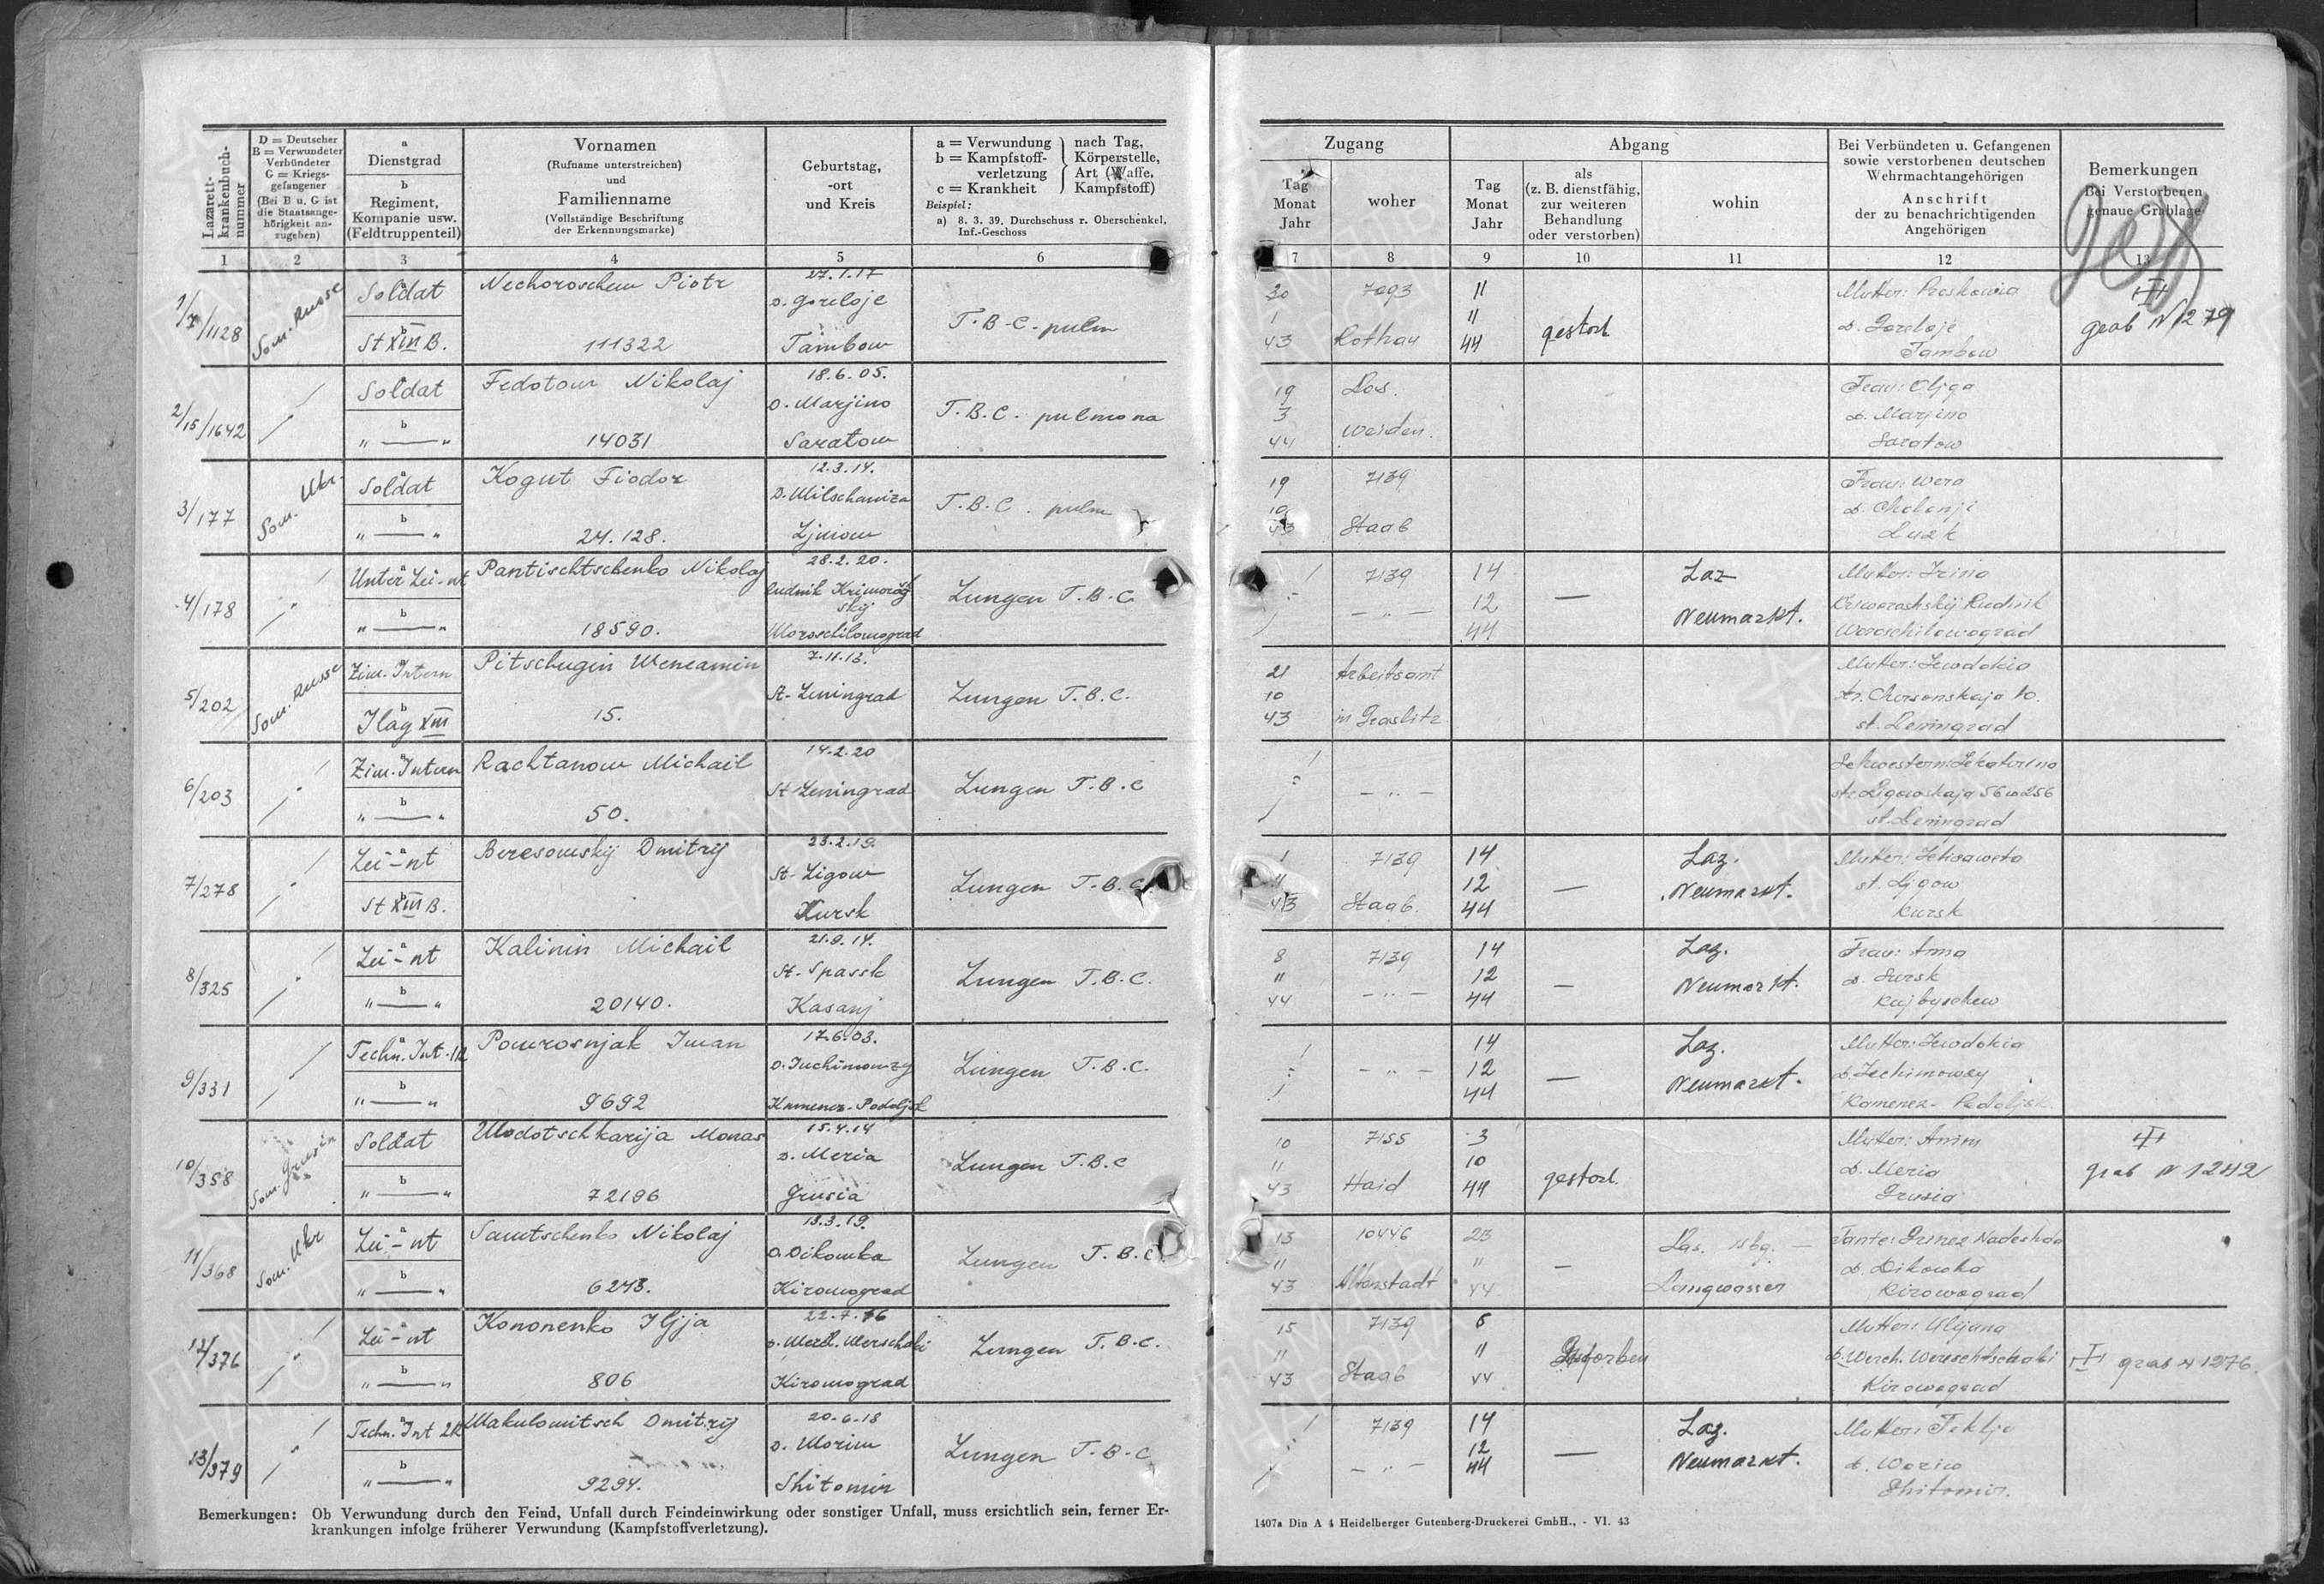 Lazarett-
krankenbuch-
nummer
D = Deutscher
B = Verwundeter
Verbündeter
G = Kriegs-
gefangener
(Bei B u. G ist
die Staatsange-
hörigkeit an-
zugeben)
a
Dienstgrad
b
Regiment,
Kompanie usw.
(Feldtruppenteil)
Vornamen
(Rufname unterstreichen)
und
Familienname
(Vollständige Beschriftung
der Erkennungsmarke)
Geburtstag,
-ort
und Kreis
a = Verwundung
b = Kampfstoff-
verletzung
c = Krankheit
nach Tag,
Körperstelle,
Art (Waffe,
Kampfstoff)
Beispiel:
a) 8. 3. 39. Durchschuss r. Oberschenkel,
Inf.-Geschoss
1 2 3 4 5 6
1/7/1128
Sow. Russe
Soldat
St XIII B.
Nechoroschew Piotr
111322
27.1.17
D. Goreloje
Tambow
T.B.C. pulm
2/15/1642
Soldat
" — "
Fedotow Nikolaj
14031
18.6.05.
D. Marjino
Saratow
T.B.C. pulmona
3/177
Sow. Ukr.
Soldat
" — "
Kogut Fiodor
24.128.
12.3.14.
D. Milschaniza
T.B.C. pulm
4/178
Unter Leu-nt
" — "
Pantischtschenko Nikolaj
18590.
28.2.20.
Rudnik
Woroschilowograd
Lungen T.B.C
5/202
Sow. Russe
Ziw. Intern
Ilag XIII
Pitschugin Weneamin
15.
7.11.13.
St. Leningrad
Lungen T.B.C.
6/203
Ziw. Intern
" — "
Rachtanow Michail
50.
14.2.20
St Leningrad
Lungen T.B.C
7/278
Leu-nt
St XIII B.
Beresowskij Dmitrij
23.2.19.
St. Ligow
Kursk
Lungen T.B.C.
8/325
Leu-nt
" — "
Kalinin Michail
20140.
21.9.14.
St. Spassk
Kasanj
Lungen T.B.C.
9/331
Techn. Int.
" — "
Powrosnjak Iwan
9692
17.6.03.
Kamenez-Podoljsk
Lungen T.B.C.
10/358
Sow. Grusin
Soldat
" — "
Wodotschkarija Monas
72196
15.4.14
D. Meria
Grusia
Lungen T.B.C
11/368
Sow. Ukr
Leu-nt
" — "
Sawtschenko Nikolaj
6243.
13.3.19.
D. Dikowka
Kirowograd
Lungen T.B.C.
12/376
Leu-nt
" — "
Kononenko Iljja
806
22.7.16
Kirowograd
Lungen T.B.C.
13/379
Techn. Int 2R
" — "
Wakulowitsch Dmitrij
9294.
20.6.18
D. Woriw
Shitomir
Lungen T.B.C
Bemerkungen: Ob Verwundung durch den Feind, Unfall durch Feindeinwirkung oder sonstiger Unfall, muss ersichtlich sein, ferner Er-
krankungen infolge früherer Verwundung (Kampfstoffverletzung).
Zugang
Abgang
Tag
Monat
Jahr
woher
Tag
Monat
Jahr
als
(z. B. dienstfähig,
zur weiteren
Behandlung
oder verstorben)
wohin
Bei Verbündeten u. Gefangenen
sowie verstorbenen deutschen
Wehrmachtangehörigen
Anschrift
der zu benachrichtigenden
Angehörigen
Bemerkungen
Bei Verstorbenen
genaue Grablage
7 8 9 10 11 12 13
20
1
43
7093
Rothau
11
11
44
gestorb.
Mutter: Proskowia
D. Goreloje
Tambow
grab N 1279
19
3
44
Weiden.
Frau: Oljga
D. Marjino
Saratow
19
10
43
7139
Staab
Frau: Wera
Luzk
7139
— " —
14
12
44
—
Laz
Neumarkt.
Mutter: Irina
Woroschilowograd
21
10
43
Arbeitsamt
in Graslitz
Mutter: Jewdokia
st. Leningrad
— " —
Schwestern: Jekaterina
st. Leningrad
1
11
43
7139
Staab.
14
12
44
—
Laz.
Neumarkt.
Mutter: Jelisaweta
st. Ljgow
Kursk
8
"
44
7139
— " —
14
12
44
—
Laz.
Neumarkt.
Frau: Anna
D. Sursk
Kujbyschew
— " —
14
12
44
—
Laz.
Neumarkt.
Mutter: Jewdokia
Kamenez-Podoljsk
10
11
43
7155
Haid
3
10
44
gestorb.
D. Meria
Grusia
grab N 1242
13
11
43
10446
Altenstadt
23
"
44
—
Langwasser
D. Dikowka
Kirowograd
15
"
43
7139
Staab
6
"
44
Gestorben
Mutter: Uljjana
Kirowograd
grab N 1276
7139
— " —
14
12
44
—
Laz.
Neumarkt.
Mutter: Tekljа
D. Woriw
Shitomir.
1407a Din A 4 Heidelberger Gutenberg-Druckerei GmbH., - VI. 43